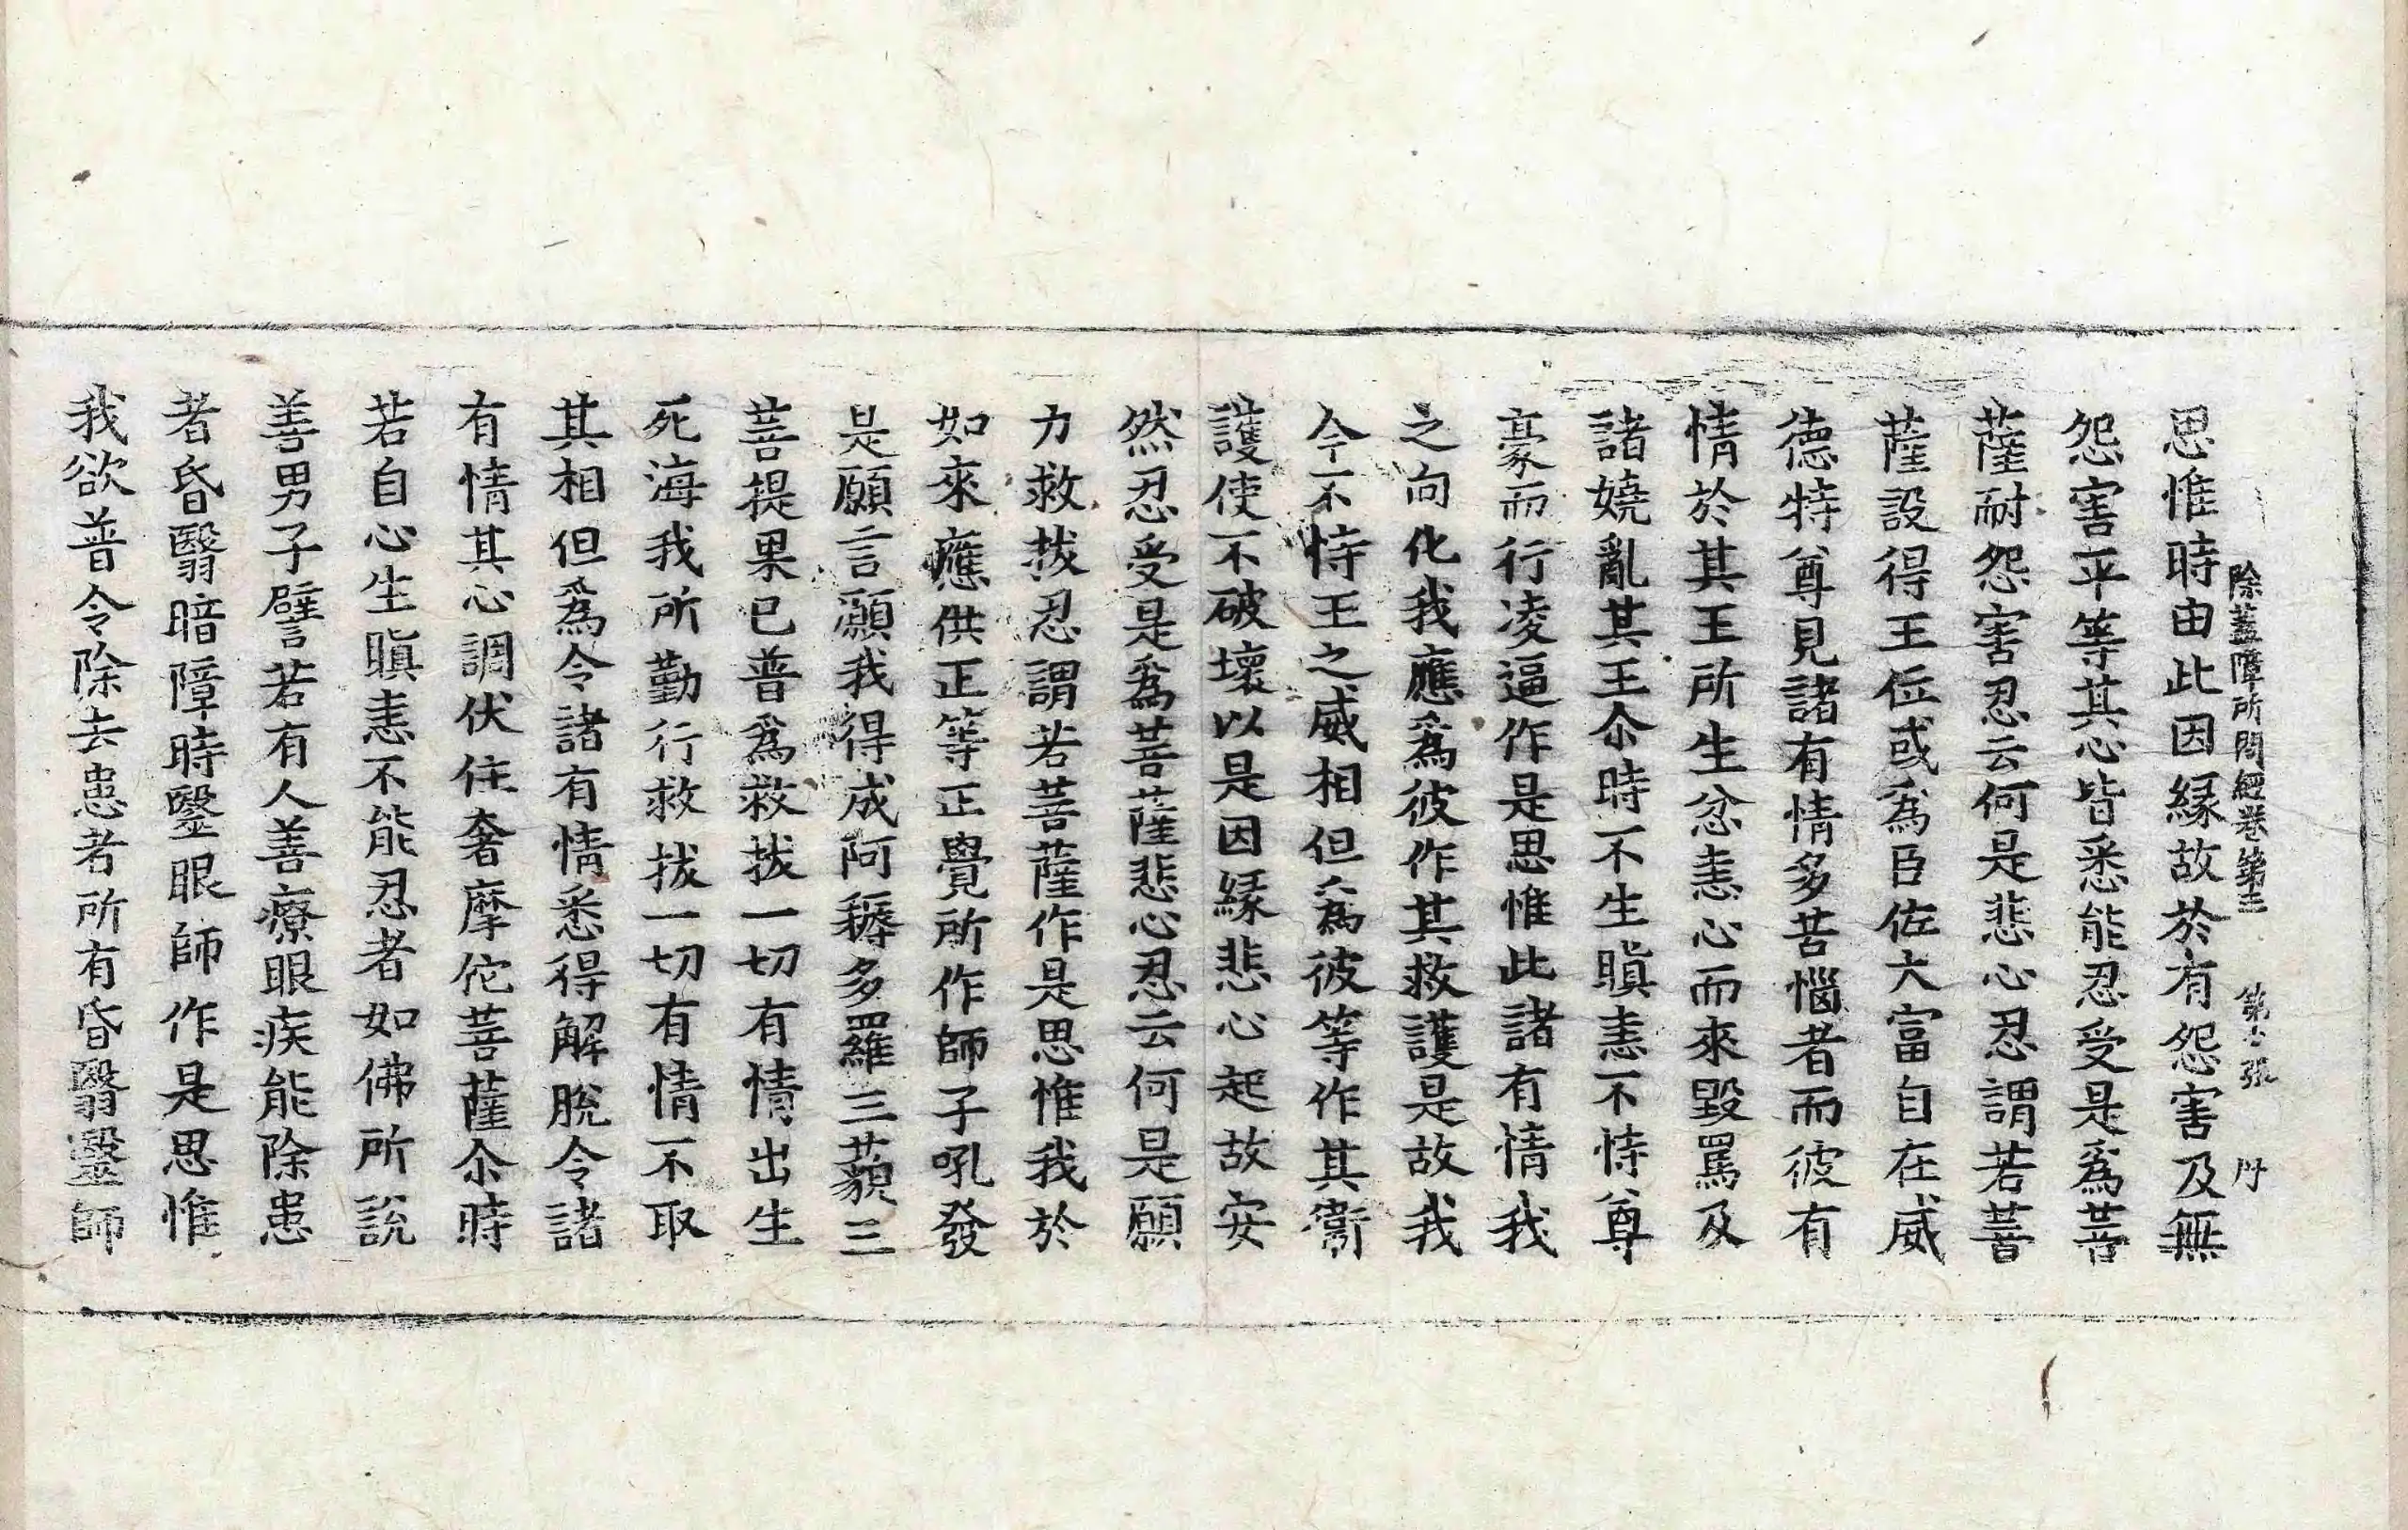 除蓋障所問經卷第三 第六張 丹
思惟時由此因緣故於有怨害及無
怨害平等其心皆悉能忍受是爲菩
薩耐怨害忍云何是悲心忍謂若菩
薩設得王位或爲臣佐大富自在威
德特尊見諸有情多苦惱者而彼有
情於其王所生忿恚心而來毀罵及
諸嬈亂其王尒時不生瞋恚不恃尊
豪而行凌逼作是思惟此諸有情我
之向化我應爲彼作其救護是故我
今不恃王之威相但爲彼等作其衞
護使不破壞以是因緣悲心起故安
然忍受是爲菩薩悲心忍云何是願
力救拔忍謂若菩薩作是思惟我於
如來應供正等正覺所作師子吼發
是願言願我得成阿耨多羅三藐三
菩提果已普爲救拔一切有情出生
死海我所勤行救拔一切有情不取
其相但爲令諸有情悉得解脫令諸
有情其心調伏住奢摩佗菩薩尒時
若自心生瞋恚不能忍者如佛所說
善男子譬若有人善療眼疾能除患
者昏翳暗障時毉眼師作是思惟
我欲普令除去患者所有昏翳毉師